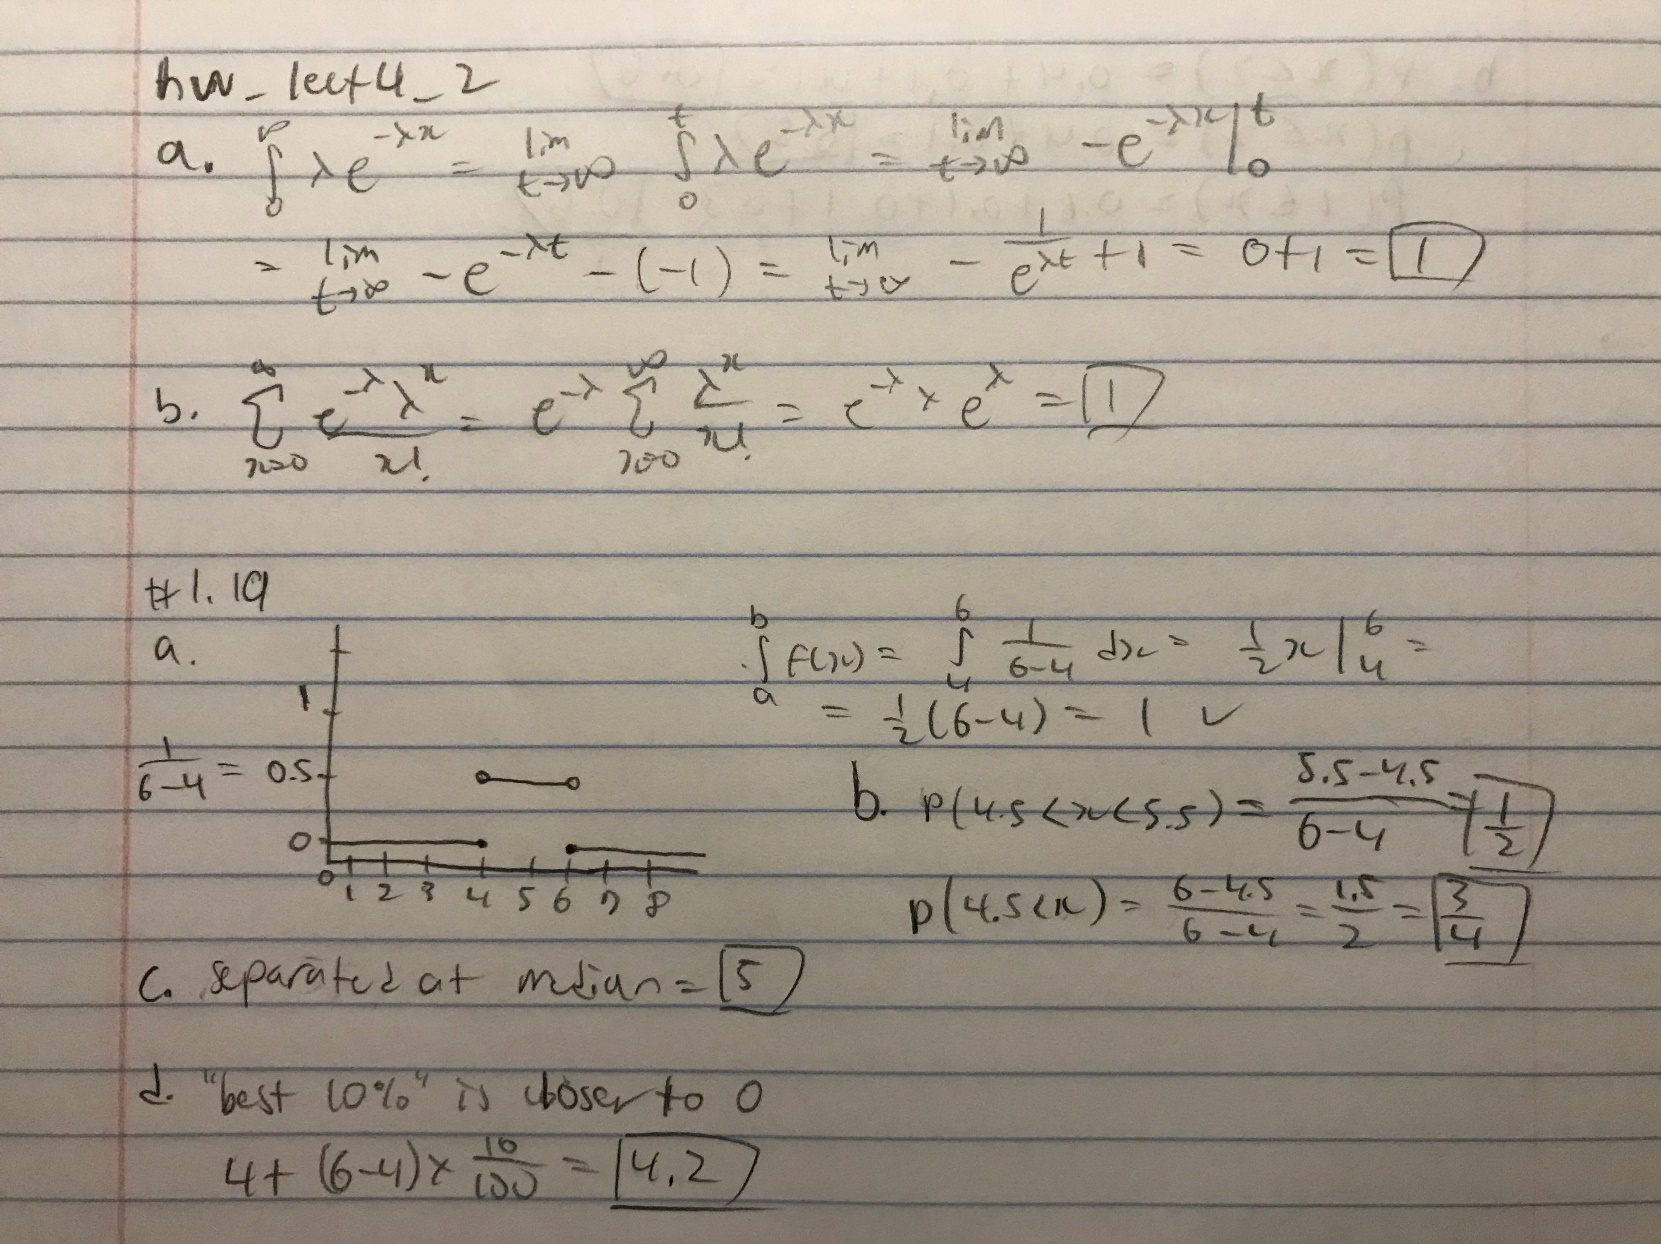 hw_lect4_2
a. ∫₀^∞ λe^{-λx} = lim_{t→∞} ∫₀^t λe^{-λx} = lim_{t→∞} -e^{-λx}|₀^t
= lim_{t→∞} -e^{-λt} - (-1) = lim_{t→∞} - 1/e^{λt} + 1 = 0+1 = 1
b. ∑_{x=0}^∞ e^{-λ}λ^x / x! = e^{-λ} ∑_{x=0}^∞ λ^x / x! = e^{-λ} × e^λ = 1
#1.19
a.
1
1/(6-4) = 0.5
0
0 1 2 3 4 5 6 7 8
∫_a^b f(x) = ∫_4^6 1/(6-4) dx = 1/2 x|_4^6 =
= 1/2 (6-4) = 1 ✓
b. P(4.5<x<5.5) = (5.5-4.5)/(6-4) = 1/2
P(4.5<x) = (6-4.5)/(6-4) = 1.5/2 = 3/4
c. separated at median = 5
d. "best 10%" is closer to 0
4+ (6-4)× 10/100 = 4.2